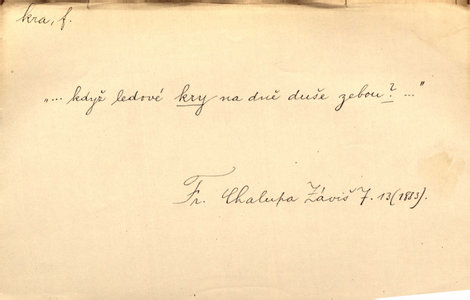 kra, f.
„... když ledové kry na dně duše zebou? ..."
Fr. Chalupa Záviš 7. 13 (1883).